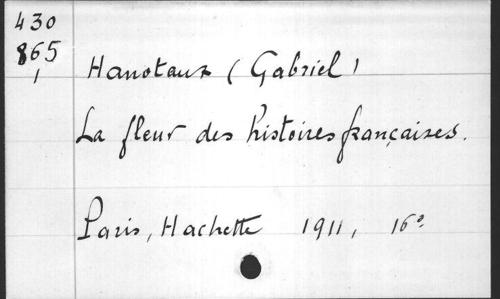 430
865
1
Hanotaux (Gabriel)
La fleur des histoires françaises.
Paris, Hachette 1911, 16°.